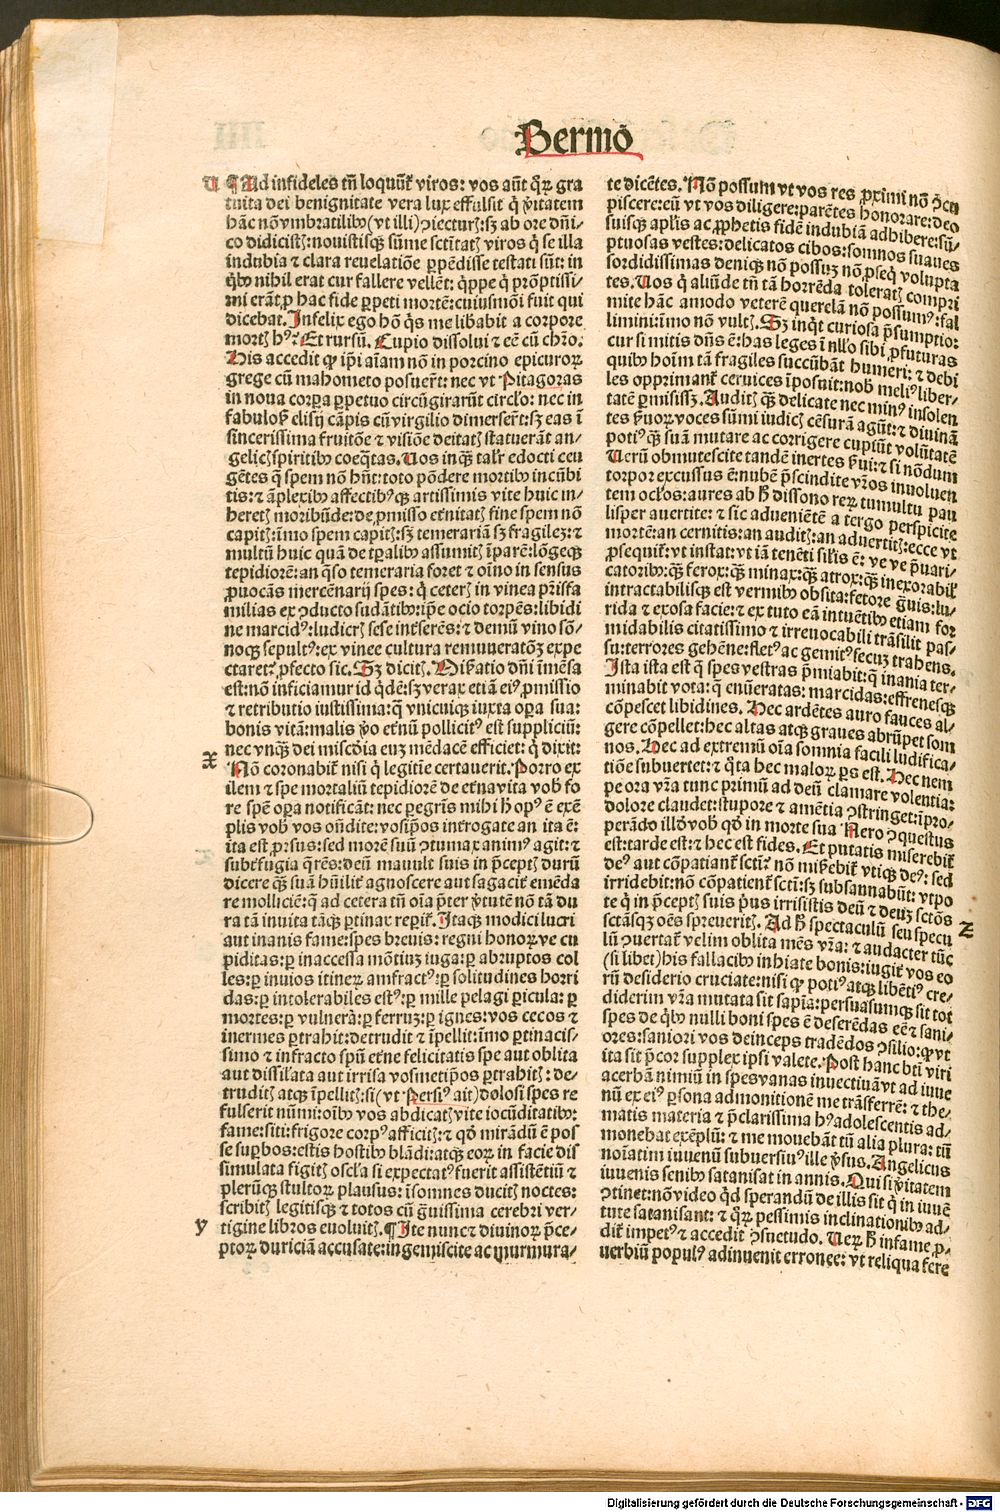 Sermō
V ¶ Ad infideles tñ loquūt᷑ viros: vos aūt qꝫ gra
tuita dei benignitate vera lux effulsit q̇ v̓itatem
hāc nō vmbratilibꝰ (vt illi) ꝯiecturis: sꝫ ab ore dñi-
co didicistis: nouistisqꝫ sūme sctītatis viros q̇ se illa
indubia ⁊ clara reuelatiōe ꝑpēdisse testati sūt: in
qibꝰ nihil erat cur fallere vellēt: qippe q̇ prōptissi-
mi erāt ꝓ hac fide ꝑpeti mortē: cuiusmōi fuit qui
dicebat. Infelix ego hō q̇s me libabit a corpore
mortis hꝰ? Et rursū. Cupio dissolui ⁊ eē cū chꝛo.
His accedit ꝙ ip̄i aīam nō in porcino epicuroꝝ
grege cū mahometo posuer̄t: nec vt Pitagoras
in noua corꝑa ꝑpetuo circūgirarūt circlo: nec in
fabulosis elisij cāpis cū virgilio dimerser̄t: sꝫ eas ī
sincerissima fruitōe ⁊ visiōe deitatis statuerāt an-
gelicis spiritibꝰ coeq̄tas. Vos inqꝫ talr̄ edocti ceu
gētes q̄ spem nō hn̄t: toto pōdere mortibꝰ incūbi
tis: ⁊ āplexibꝰ affectibꝰqꝫ artissimis vite huic in-
heretis moribūde: de ꝓmisso et̄nitatis sine spem nō
capitis: īmo spem capitis: sꝫ temerariā sꝫ fragileꝫ: ⁊
multū huic quā de tꝑalibꝰ assumitis īparē: lōgeqꝫ
tepidiorē: an q̄so temeraria foret ⁊ oīno in sensus
ꝓuocās mercēnarij spes: q̇ ceteris in vinea pr̄isfa
milias ex ꝯducto sudātibꝰ: ip̄e ocio torpēs: libidi
ne marcidꝰ: ludicris sese int̄serēs: ⁊ demū vino sō-
noqꝫ sepultꝰ: ex vinee cultura remuneratōꝫ expe
ctaret? ꝓfecto sic. Sꝫ dicitis. Misratio dñi īmēsa
est: nō inficiamur id q̇dē: sꝫ verax etiā eiꝰ ꝓmissio
⁊ retributio iustissima: q̄ vnicuiqꝫ iuxta oꝑa sua:
bonis vitā: malis v̓o et̄nū pollicitꝰ est suppliciū:
nec vnqꝫ dei miscōia euꝫ mēdacē efficiet: q̇ dixit:
X Nō coronabit᷑ nisi q̇ legitīe certauerit. Porro ex
ilem ⁊ spe mortaliū tepidiorē de et̄na vita vobis fo
re spēn oꝑa notificāt: nec ꝑegr̄is mihi hꝰ opꝰ ē exē
plis vobis vos oñdite: vosip̄os int̄rogate an ita ē:
ita est ꝓrsus: sed morē suū ꝯtumax animꝰ agit: ⁊
subt̄fugia q̄rēs: deū mauult suis in p̄ceptis durū
dicere qꝫ suā hūilit̄ agnoscere aut sagacit̄ emēda
re molliciē: q̄ ad cetera tū oīa p̄ter v̓tutē nō tā du
ra tā inuita tāqꝫ ꝑtinax reꝑit᷑. Itaqꝫ modici lucri
aut inanis fame: spes breuis: regni honorꝝve cu
piditas: ꝑ inaccessa mōtiuꝫ iuga: ꝑ abruptos col
les: ꝑ inuios itineꝝ amfractꝰ: ꝑ solitudines horri
das: ꝑ intolerabiles estꝰ: ꝑ mille pelagi ꝑicula: ꝑ
mortes: ꝑ vulnera: ꝑ ferruꝫ: ꝑ ignes: vos cecos ⁊
inermes ꝑtrahit: detrudit ⁊ īpellit: īmo ꝑtinacis-
simo ⁊ infracto spū et̄ne felicitatis spe aut oblita
aut dissilata aut irrisa vosmetip̄os ꝑtrahitis: de-
truditis atqꝫ īpellitis: si (vt Persiꝰ ait) dolosi spes re
fulserit nūmi: oībꝰ vos abdicatis vite iocūditatibꝰ:
fame: siti: frigore corpꝰ afficitis: ⁊ qd̓ mirādū ē pos
se suꝑbos: estis hostibꝰ blādi: atqꝫ eoꝝ in facie dis
simulata figitis oscla si expectatꝰ fuerit assistētiū ⁊
plerūqꝫ stultoꝝ plausus: īsomnes ducitis noctes:
scribitis legitisqꝫ ⁊ totos cū gr̄uissima cerebri ver-
Y tigine libros euoluitis. ¶ Ite nunc ⁊ diuinoꝝ p̄ce-
ptoꝝ duriciā accusate: ingemiscite ac murmura-
te dicētes. Nō possum vt vos res ꝓximi nō ꝯcu
piscere: eū vt vos diligere: parētes honorare: deo
suisqꝫ aplīs ac ꝓphetis fidē indubiā adhibere: sū-
ptuosas vestes: delicatos cibos: somnos suaues
sordidissimas deniqꝫ nō possuꝫ nō ꝓseq̇ volupta
tes. Vos q̇ aliūde tñ tā horrēda toleratis compri
mite hāc amodo veterē querelā nō possumꝰ: fal
limini: īmo nō vultis. Sꝫ inq̇t curiosa p̄sumptio:
cur si mitis dñs ē: has leges ī nllo sibi ꝓfuturas
quibꝰ hoīm tā fragiles succūbāt humeri: ⁊ debi
les opprimant᷑ ceruices īposuit: nobis meliꝰ liber-
tatē ꝑmisissꝫ. Auditis qꝫ delicate nec minꝰ insolen
tes v̓uoꝝ voces sūmi iudicis cēsurā agūt: ⁊ diuinā
potiꝰ qꝫ suā mutare ac corrigere cupiūt volūtatē
Verū obmutescite tandē inertes s̓ui: ⁊ si nōdum
torpor excussus ē: nubē p̄scindite vr̄os inuoluen
tem oclos: aures ab hꝰ dissono reꝝ tumultu pau
lisper auertite: ⁊ sic aduenietē a tergo perspicite
mortē: an cernitis: an auditis: an aduertitis: ecce vt
ꝓsequit᷑: vt instat: vt iā tenēti silis ē: ve ve p̄uari-
catoribꝰ: qꝫ ferox: qꝫ minax: qꝫ atrox: qꝫ inexorabilis
intractabilisqꝫ est vermibꝰ obsita: fetore gr̄uis: lu-
rida ⁊ exosa facie: ⁊ ex tuto eā intuētibꝰ etiam for
midabilis citatissimo ⁊ irreuocabili trāsilit pas-
su: terrores gehēne: fletꝰ ac gemitꝰ secuꝫ trahens.
Ista ista est q̄ spes vestras p̄miabit: q̄ inania ter-
minabit vota: q̄ enūeratas: marcidas: effrenesqꝫ
cōpescet libidines. Hec ardētes auro fauces al-
gere cōpellet: hec altas atqꝫ graues abrūpet som
nos. Hec ad extremū oīa somnia facili ludifica-
tiōe subuertet: ⁊ q̄ta hec maloꝝ ꝑs est. Hec nem
pe ora vr̄a tunc primū ad deū clamare volentia:
dolore claudet: stupore ⁊ amētia ꝯstringet: īpro-
perādo illd̓ vobis qd̓ in morte sua Nero ꝯquestus
est: tarde est: ⁊ hec est fides. Et putatis miserebit᷑
deꝰ aut cōpatiant᷑ scti? nō mis̓ebit᷑ vtiqꝫ deꝰ: sed
irridebit: nō cōpatient᷑ scti: sꝫ subsannabūt: vtpo
te q̇ in p̄ceptis suis p̄us irrisistis deū ⁊ deuꝫ sctōs
Z sctāsqꝫ oēs spreueritis. Ad hꝰ spectaculū seu specu
lū ꝯuertat᷑ velim oblita mēs vr̄a: ⁊ audacter tūc
(si libet) his fallacibꝰ inhiate bonis: iugit̄ vos eo
rū desiderio cruciate: nisi ꝙ potiꝰ atqꝫ libētiꝰ cre-
diderim vr̄a mutata sit sapīa: persuasumqꝫ sit tot
spes de q̇bꝰ nulli boni spes ē deserēdas eē ⁊ sani-
ores: saniori vos deinceps tradēdos ꝯsilio: ꝙ vt
ita sit p̄cor supplex ipsi valete. Post hanc bti viri
acerbā nimiū in spes vanas inuectiuā vt ad iuue
nū ex eiꝰ ꝑsona admonitionē me trāsferrē: ⁊ the-
matis materia ⁊ p̄clarissima hꝰ adolescentis ad-
monebat exēplū: ⁊ me mouebāt tū alia plura: tū
noīatim iuuenū subuersiuꝰ ille ꝟsus. Angelicus
iuuenis senibꝰ satanisat in annis. Qui si v̓itatem
ꝯtinet: nō video q̇d sperandū de illis sit q̇ in iuuē
tute satanisant: ⁊ qꝝ pessimis inclinationibꝰ ad-
dit᷑ impetꝰ ⁊ accedit ꝯsuetudo. Veꝝ hꝰ infame ꝓ-
uerbiū populꝰ adinuenit erronee: vt reliqua fere
Digitalisierung gefördert durch die Deutsche Forschungsgemeinschaft - DFG